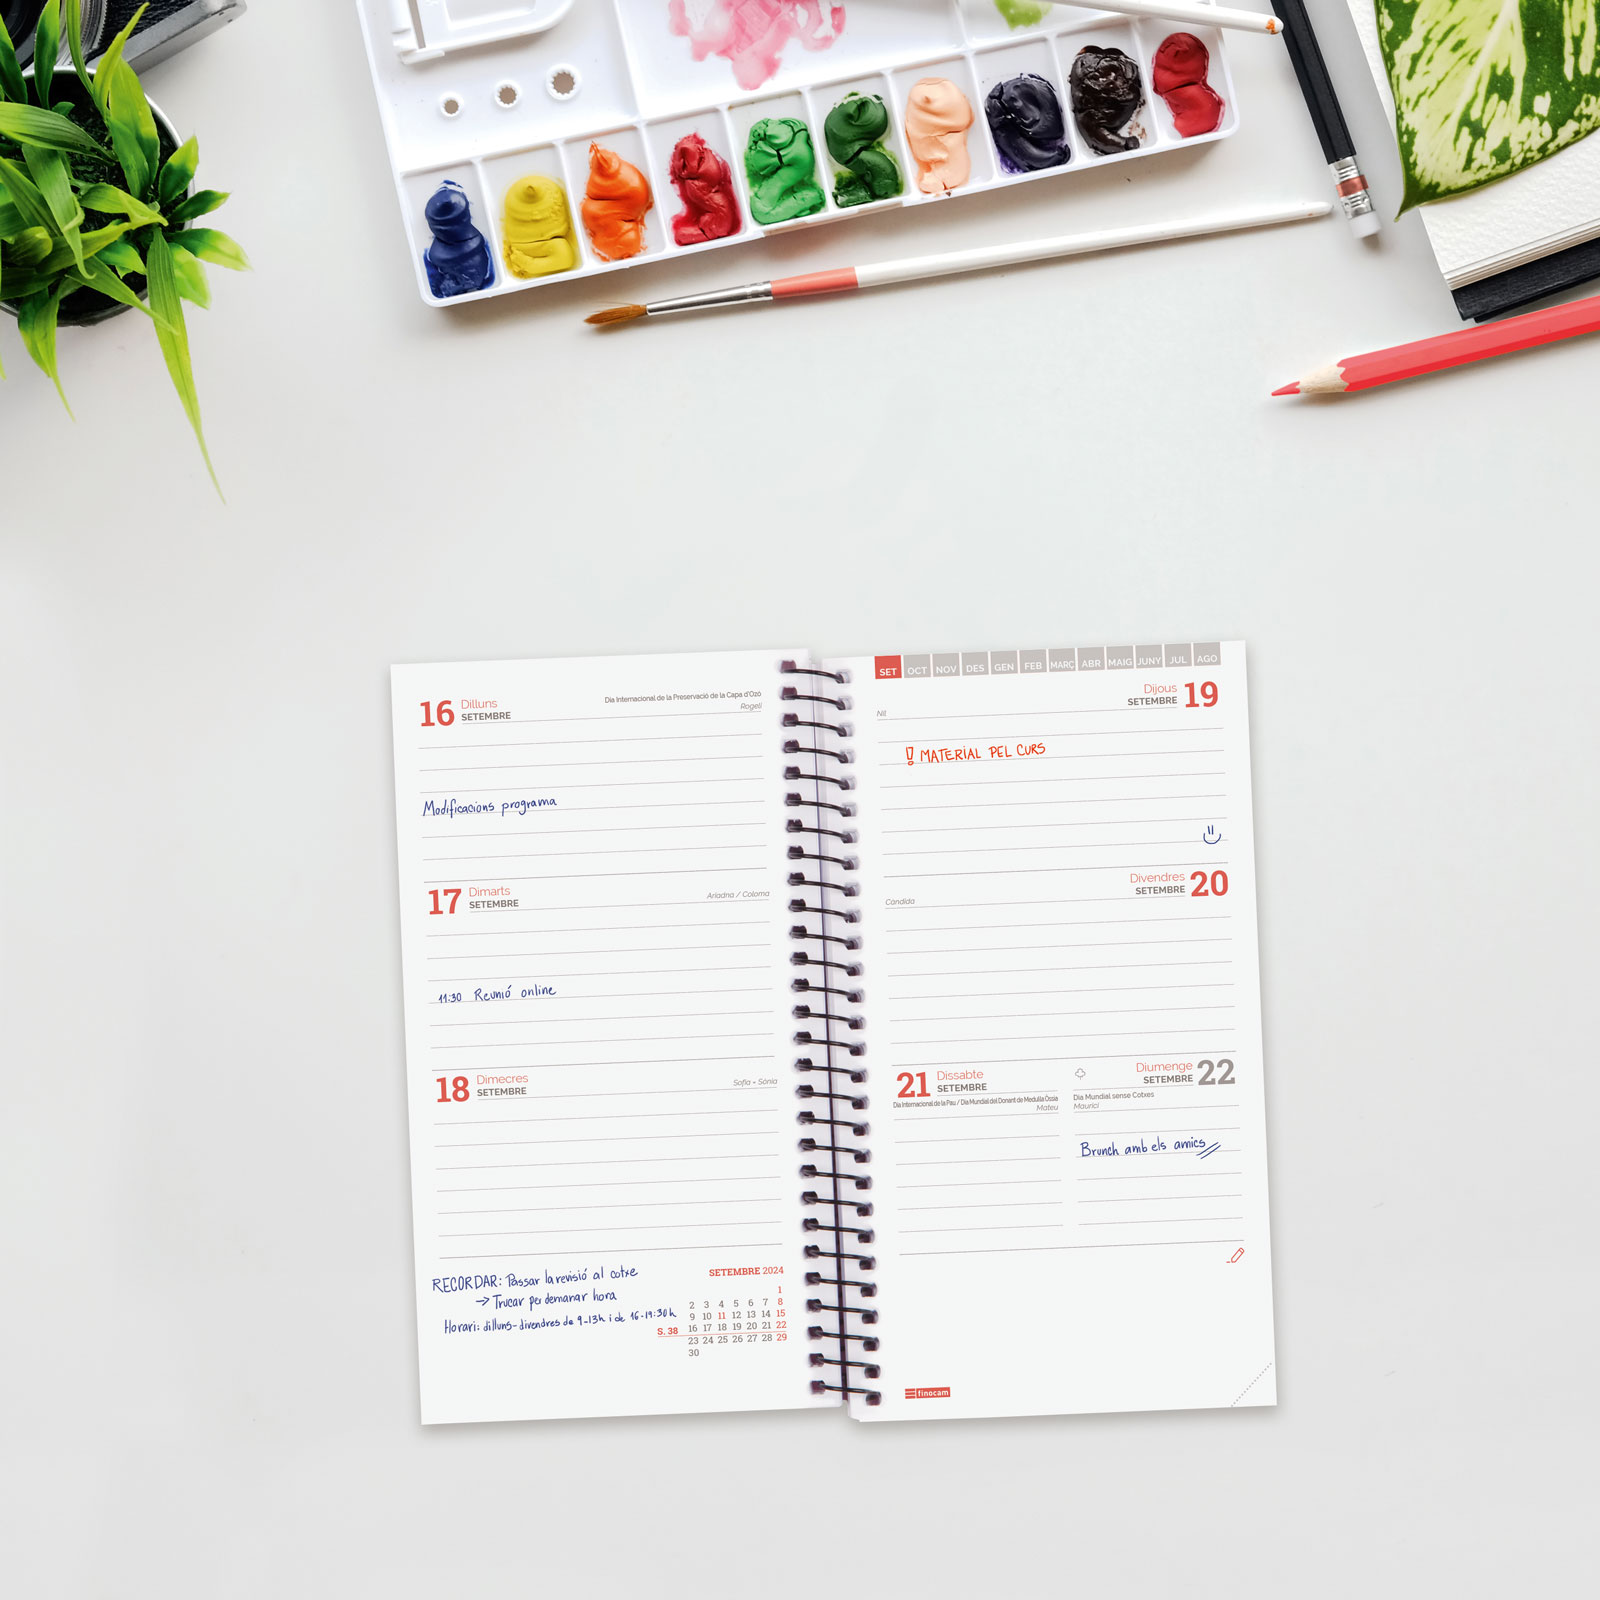 16 Dilluns
SETEMBRE
Dia Internacional de la Preservació de la Capa d'Ozó
Rogeli
Modificacions programa
17 Dimarts
SETEMBRE
Ariadna / Coloma
11:30 Reunió online
18 Dimecres
SETEMBRE
Sofia - Sònia
RECORDAR: Passar la revisió al cotxe
→ Trucar per demanar hora
Horari: dilluns-divendres de 9-13h i de 16-19:30h
SETEMBRE 2024
1
2 3 4 5 6 7 8
9 10 11 12 13 14 15
S. 38 16 17 18 19 20 21 22
23 24 25 26 27 28 29
30
SET OCT NOV DES GEN FEB MARÇ ABR MAIG JUNY JUL AGO
Dijous 19
SETEMBRE
Nil
! MATERIAL PEL CURS
Divendres 20
SETEMBRE
Candida
21 Dissabte
SETEMBRE
Dia Internacional de la Pau / Dia Mundial del Donant de Medul·la Òssia
Mateu
Diumenge 22
SETEMBRE
Dia Mundial sense Cotxes
Maurici
Brunch amb els amics
finocam